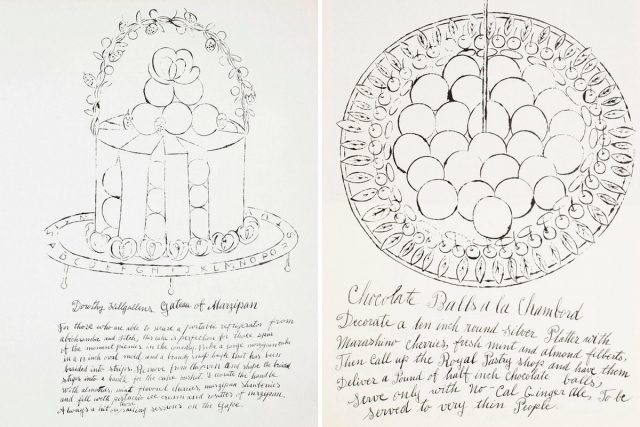 A B C D E F G H I J K L M N O P Q
Dorothy Killgallen's Gateau of Marzipan
For those who are able to secure a portable refrigerator from
abercrombie and fitch, this cake is perfection for those spur
of the moment picnics in the country. Bake a large marzipan
in a 12 inch oval mold and a brandy snaps batch that has been
braided into strips. Remove from the oven and shape the braid
strips into a handle for the cake basket. Decorate the handle
with almonds, mint flavored cherries, marzipan strawberries
and fill with pistachio ice cream and rosettes of marzipan.
Always a hit in those sailing sessions on the Cape.
Chocolate Balls a la Chambord
Decorate a ten inch round silver Platter with
Maraschino cherries, fresh mint and almond filberts.
Then call up the Royal Pastry shop and have them
Deliver a Pound of half inch Chocolate balls,
Serve only with No-Cal Ginger Ale, To be
served to very thin People.